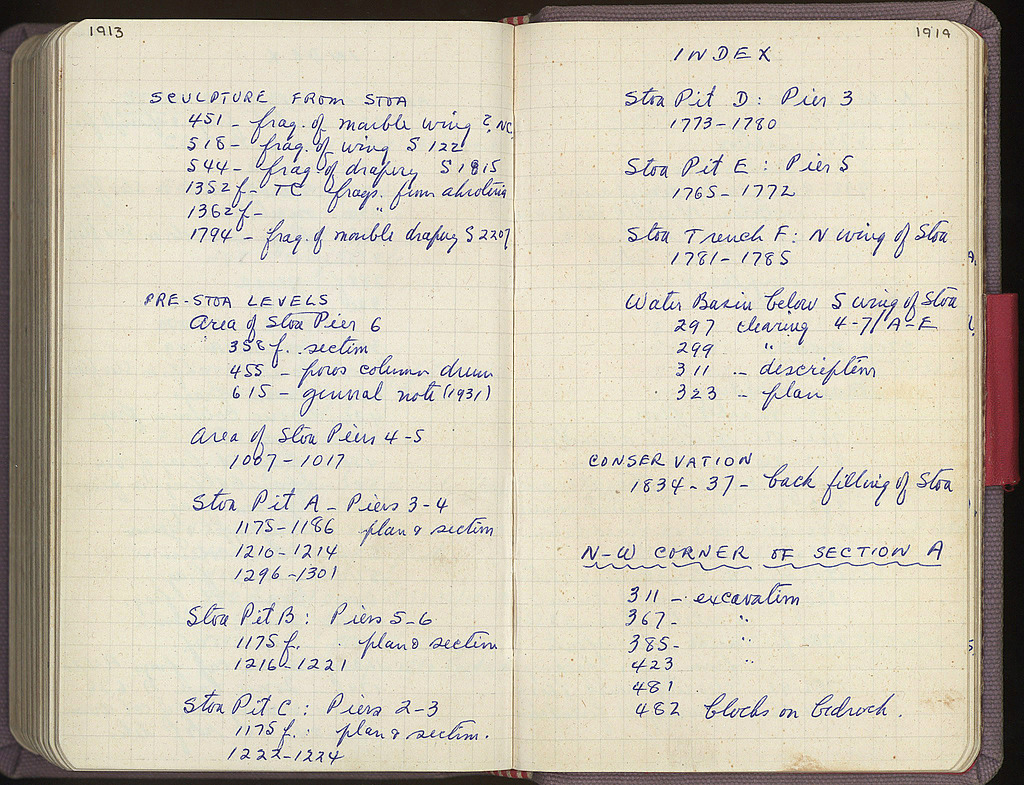 1913
SCULPTURE FROM STOA
451 - frag. of marble wing ?, NC
518 - frag. of wing S 122
544 - frag of drapery S 1815
1352 f - TC frags. from akroteria
1362 f - "
1794 - frag. of marble drapery S 2207
PRE-STOA LEVELS
Area of Stoa Pier 6
358 f. section
455 - poros column drum
615 - general note (1931)
Area of Stoa Piers 4-5
1007-1017
Stoa Pit A - Piers 3-4
1175-1186 plan & section
1210-1214
1296-1301
Stoa Pit B: Piers 5-6
1175 f. plan & section
1216-1221
Stoa Pit C: Piers 2-3
1175 f.: plan & section.
1222-1224
1914
INDEX
Stoa Pit D: Pier 3
1773-1780
Stoa Pit E: Pier 5
1765-1772
Stoa Trench F: N wing of Stoa
1781-1785
Water Basin below S wing of Stoa
297 clearing 4-7/A-E
299 "
311 - description
323 - plan
CONSERVATION
1834-37 - back filling of Stoa
N-W CORNER OF SECTION A
311 - excavation
367 - "
385 -
423 "
481
482 blocks on bedrock.